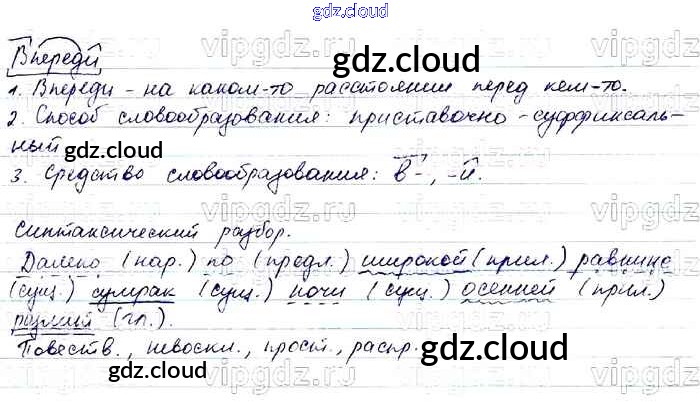 gdz.cloud
Впереди
1. Впереди - на каком-то расстоянии перед кем-то.
2. Способ словообразования: приставочно-суффиксаль-
ный
3. Средство словообразования: в-, -и.
Синтаксический разбор.
Далеко (нар.) по (предл.) широкой (прил.) равнине
(сущ.) сумрак (сущ.) ночи (сущ.) осенней (прил.)
разлит (гл.).
Повеств., невоскл., прост., распр.
gdz.cloud
gdz.cloud
gdz.cloud
gdz.cloud
gdz.cloud
gdz.cloud
vipgdz.ru
vipgdz.ru